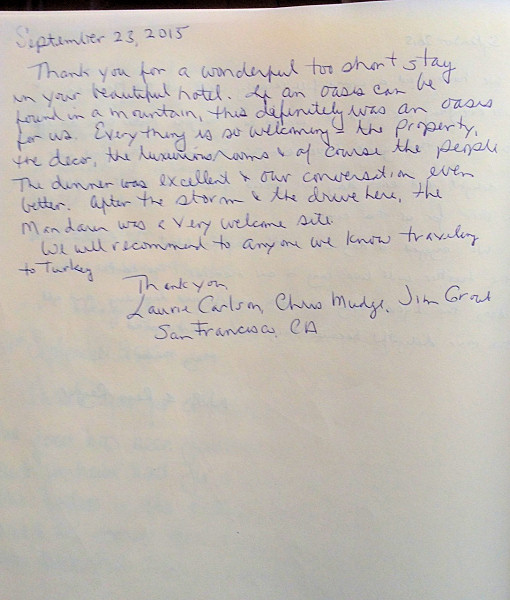 September 23, 2015
Thank you for a wonderful too short stay
in your beautiful hotel. If an oasis can be
found in a mountain, this definitely was an oasis
for us. Everything is so welcoming - the property,
the decor, the luxurious rooms & of course the people
The dinner was excellent & our conversation even
better. After the storm & the drive here, the
Mandarin was a very welcome site.
We will recommend to anyone we know traveling
to Turkey
Thank you,
Laurie Carlson, Chris Mudge, Jim Grout
San Francisco, CA